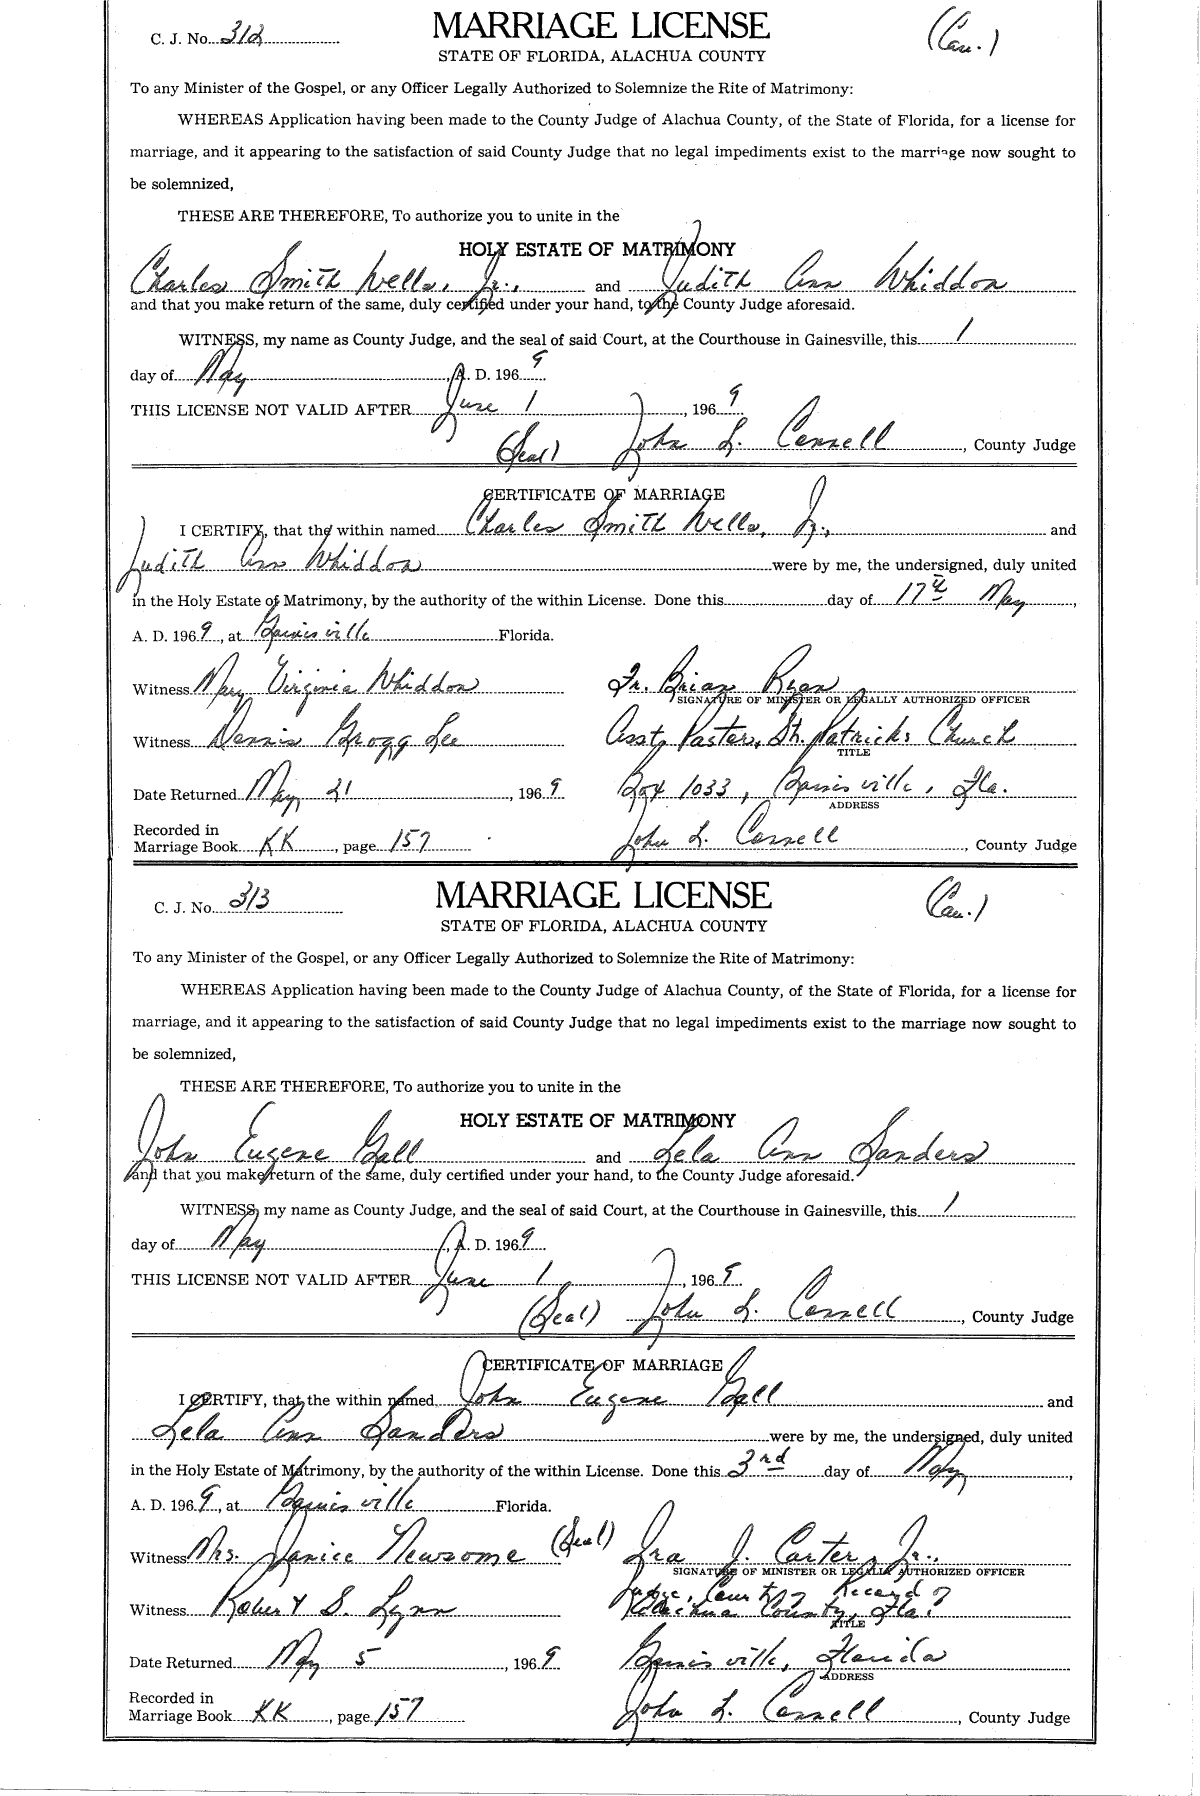 C. J. No. 312
MARRIAGE LICENSE
(Cau.)
STATE OF FLORIDA, ALACHUA COUNTY
To any Minister of the Gospel, or any Officer Legally Authorized to Solemnize the Rite of Matrimony:
WHEREAS Application having been made to the County Judge of Alachua County, of the State of Florida, for a license for
marriage, and it appearing to the satisfaction of said County Judge that no legal impediments exist to the marriage now sought to
be solemnized,
THESE ARE THEREFORE, To authorize you to unite in the
HOLY ESTATE OF MATRIMONY
Charles Smith Wells, Jr., and Judith Ann Whiddon
and that you make return of the same, duly certified under your hand, to the County Judge aforesaid.
WITNESS, my name as County Judge, and the seal of said Court, at the Courthouse in Gainesville, this 1
day of May, A. D. 1969
THIS LICENSE NOT VALID AFTER June 1, 1969
(Seal) John L. Connell, County Judge
CERTIFICATE OF MARRIAGE
I CERTIFY, that the within named Charles Smith Wells, Jr., and
Judith Ann Whiddon were by me, the undersigned, duly united
in the Holy Estate of Matrimony, by the authority of the within License. Done this day of 17th May,
A. D. 1969, at Gainesville Florida.
Witness Mary Virginia Whiddon Fr. Brian Ryan
SIGNATURE OF MINISTER OR LEGALLY AUTHORIZED OFFICER
Witness Dennis Gregg Lee Asst. Pastor, St. Patricks Church
TITLE
Date Returned May 21, 1969 Box 1033, Gainesville, Fla.
ADDRESS
Recorded in
Marriage Book KK, page 157 John L. Connell, County Judge
C. J. No. 313
MARRIAGE LICENSE
(Cau.)
STATE OF FLORIDA, ALACHUA COUNTY
To any Minister of the Gospel, or any Officer Legally Authorized to Solemnize the Rite of Matrimony:
WHEREAS Application having been made to the County Judge of Alachua County, of the State of Florida, for a license for
marriage, and it appearing to the satisfaction of said County Judge that no legal impediments exist to the marriage now sought to
be solemnized,
THESE ARE THEREFORE, To authorize you to unite in the
HOLY ESTATE OF MATRIMONY
John Eugene Gall and Lela Ann Sanders
and that you make return of the same, duly certified under your hand, to the County Judge aforesaid.
WITNESS, my name as County Judge, and the seal of said Court, at the Courthouse in Gainesville, this 1
day of May, A. D. 1969
THIS LICENSE NOT VALID AFTER June 1, 1969
(Seal) John L. Connell, County Judge
CERTIFICATE OF MARRIAGE
I CERTIFY, that the within named John Eugene Gall and
Lela Ann Sanders were by me, the undersigned, duly united
in the Holy Estate of Matrimony, by the authority of the within License. Done this 3rd day of May,
A. D. 1969, at Gainesville Florida.
Witness Mrs. Janice Newsome (Seal) Ira J. Carter, Jr.,
SIGNATURE OF MINISTER OR LEGALLY AUTHORIZED OFFICER
Judge, Court of Record of
Witness Robert S. Lynn Alachua County, Fla.
TITLE
Date Returned May 5, 1969 Gainesville, Florida
ADDRESS
Recorded in
Marriage Book KK, page 157 John L. Connell, County Judge